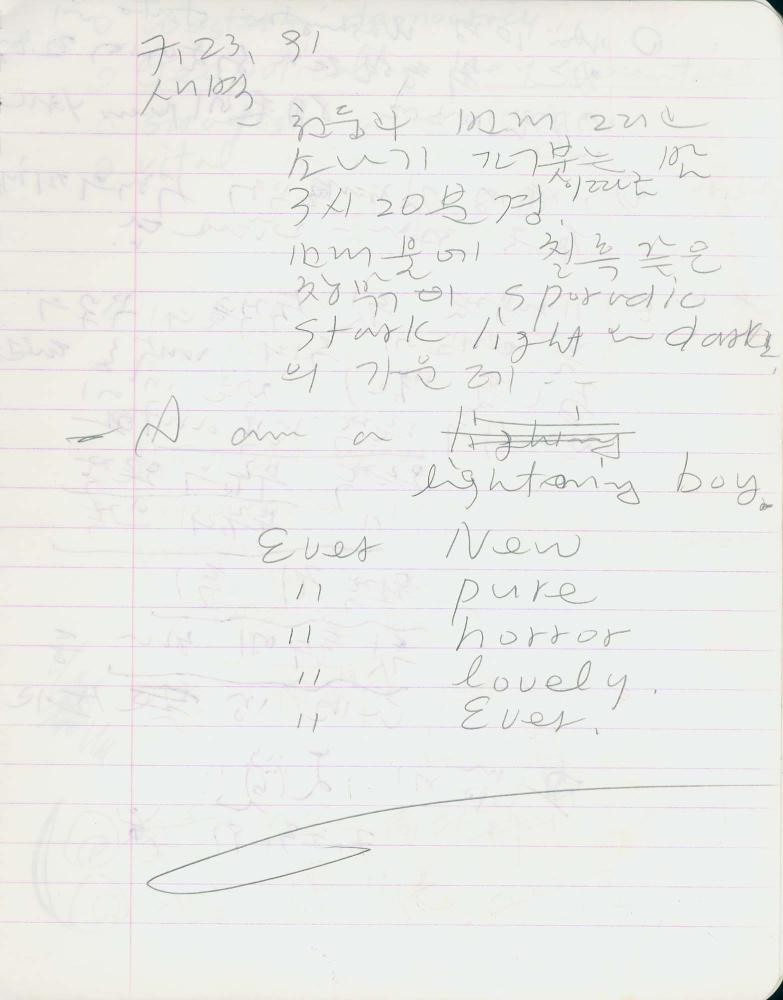 7, 23, 91
새벽
- 천둥과 번개 그리고
소나기 거더붓는 밤
이따금
3시 20분경.
번개불에 칠흑 같은
장막이 sporadic
stark light in dark
의 가운데 - -
- A am a lightning
lightning boy.
Ever New
" pure
" horror
" lovely.
" Ever.